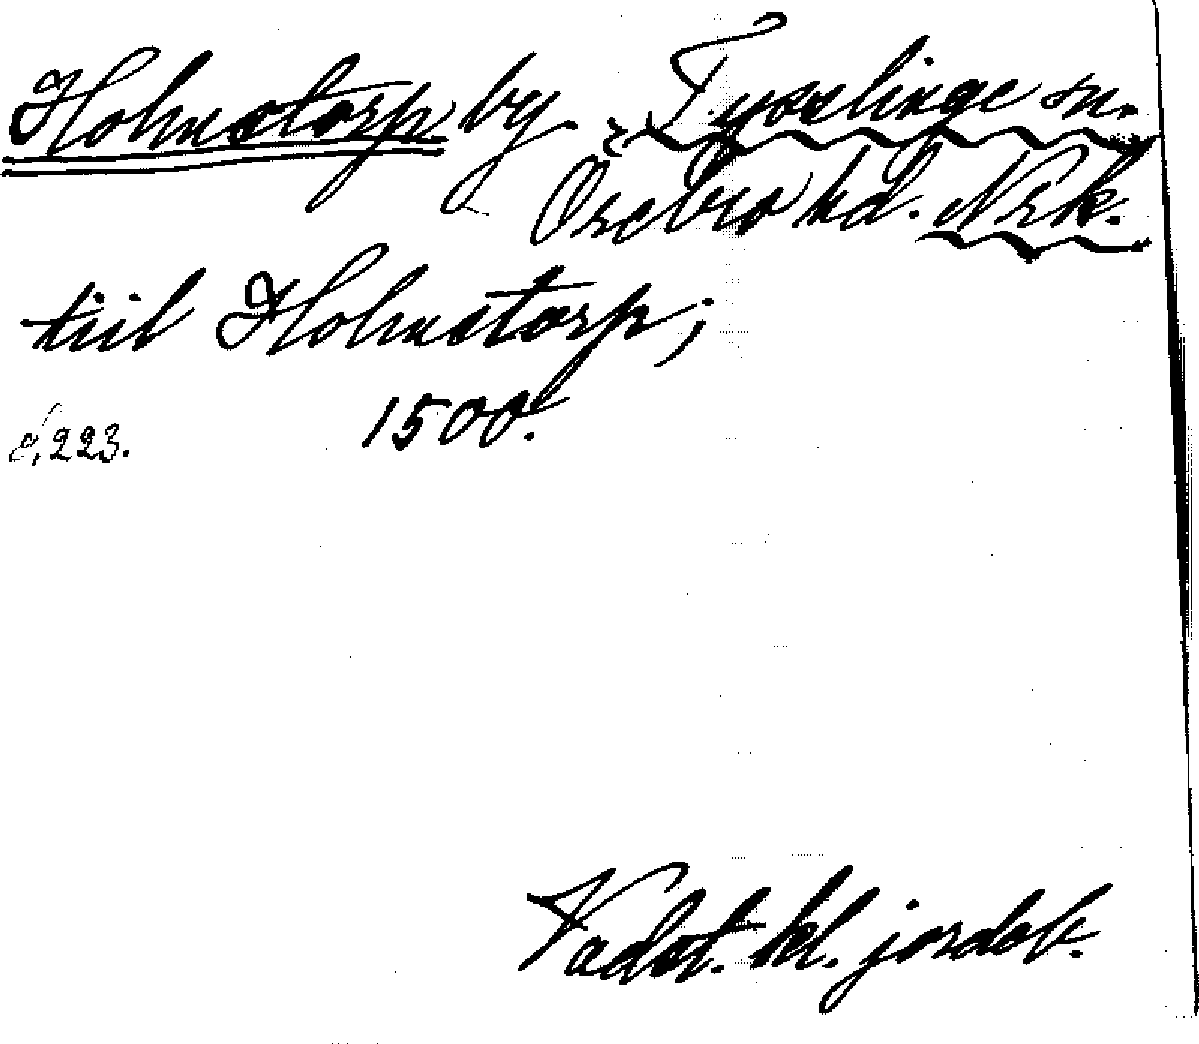 Holmstorp by Tysslinge sn.
Örebro hd. Nrk.
tiil Holmstorp;
1500.
s. 223.
Vadst. kl. jordab.